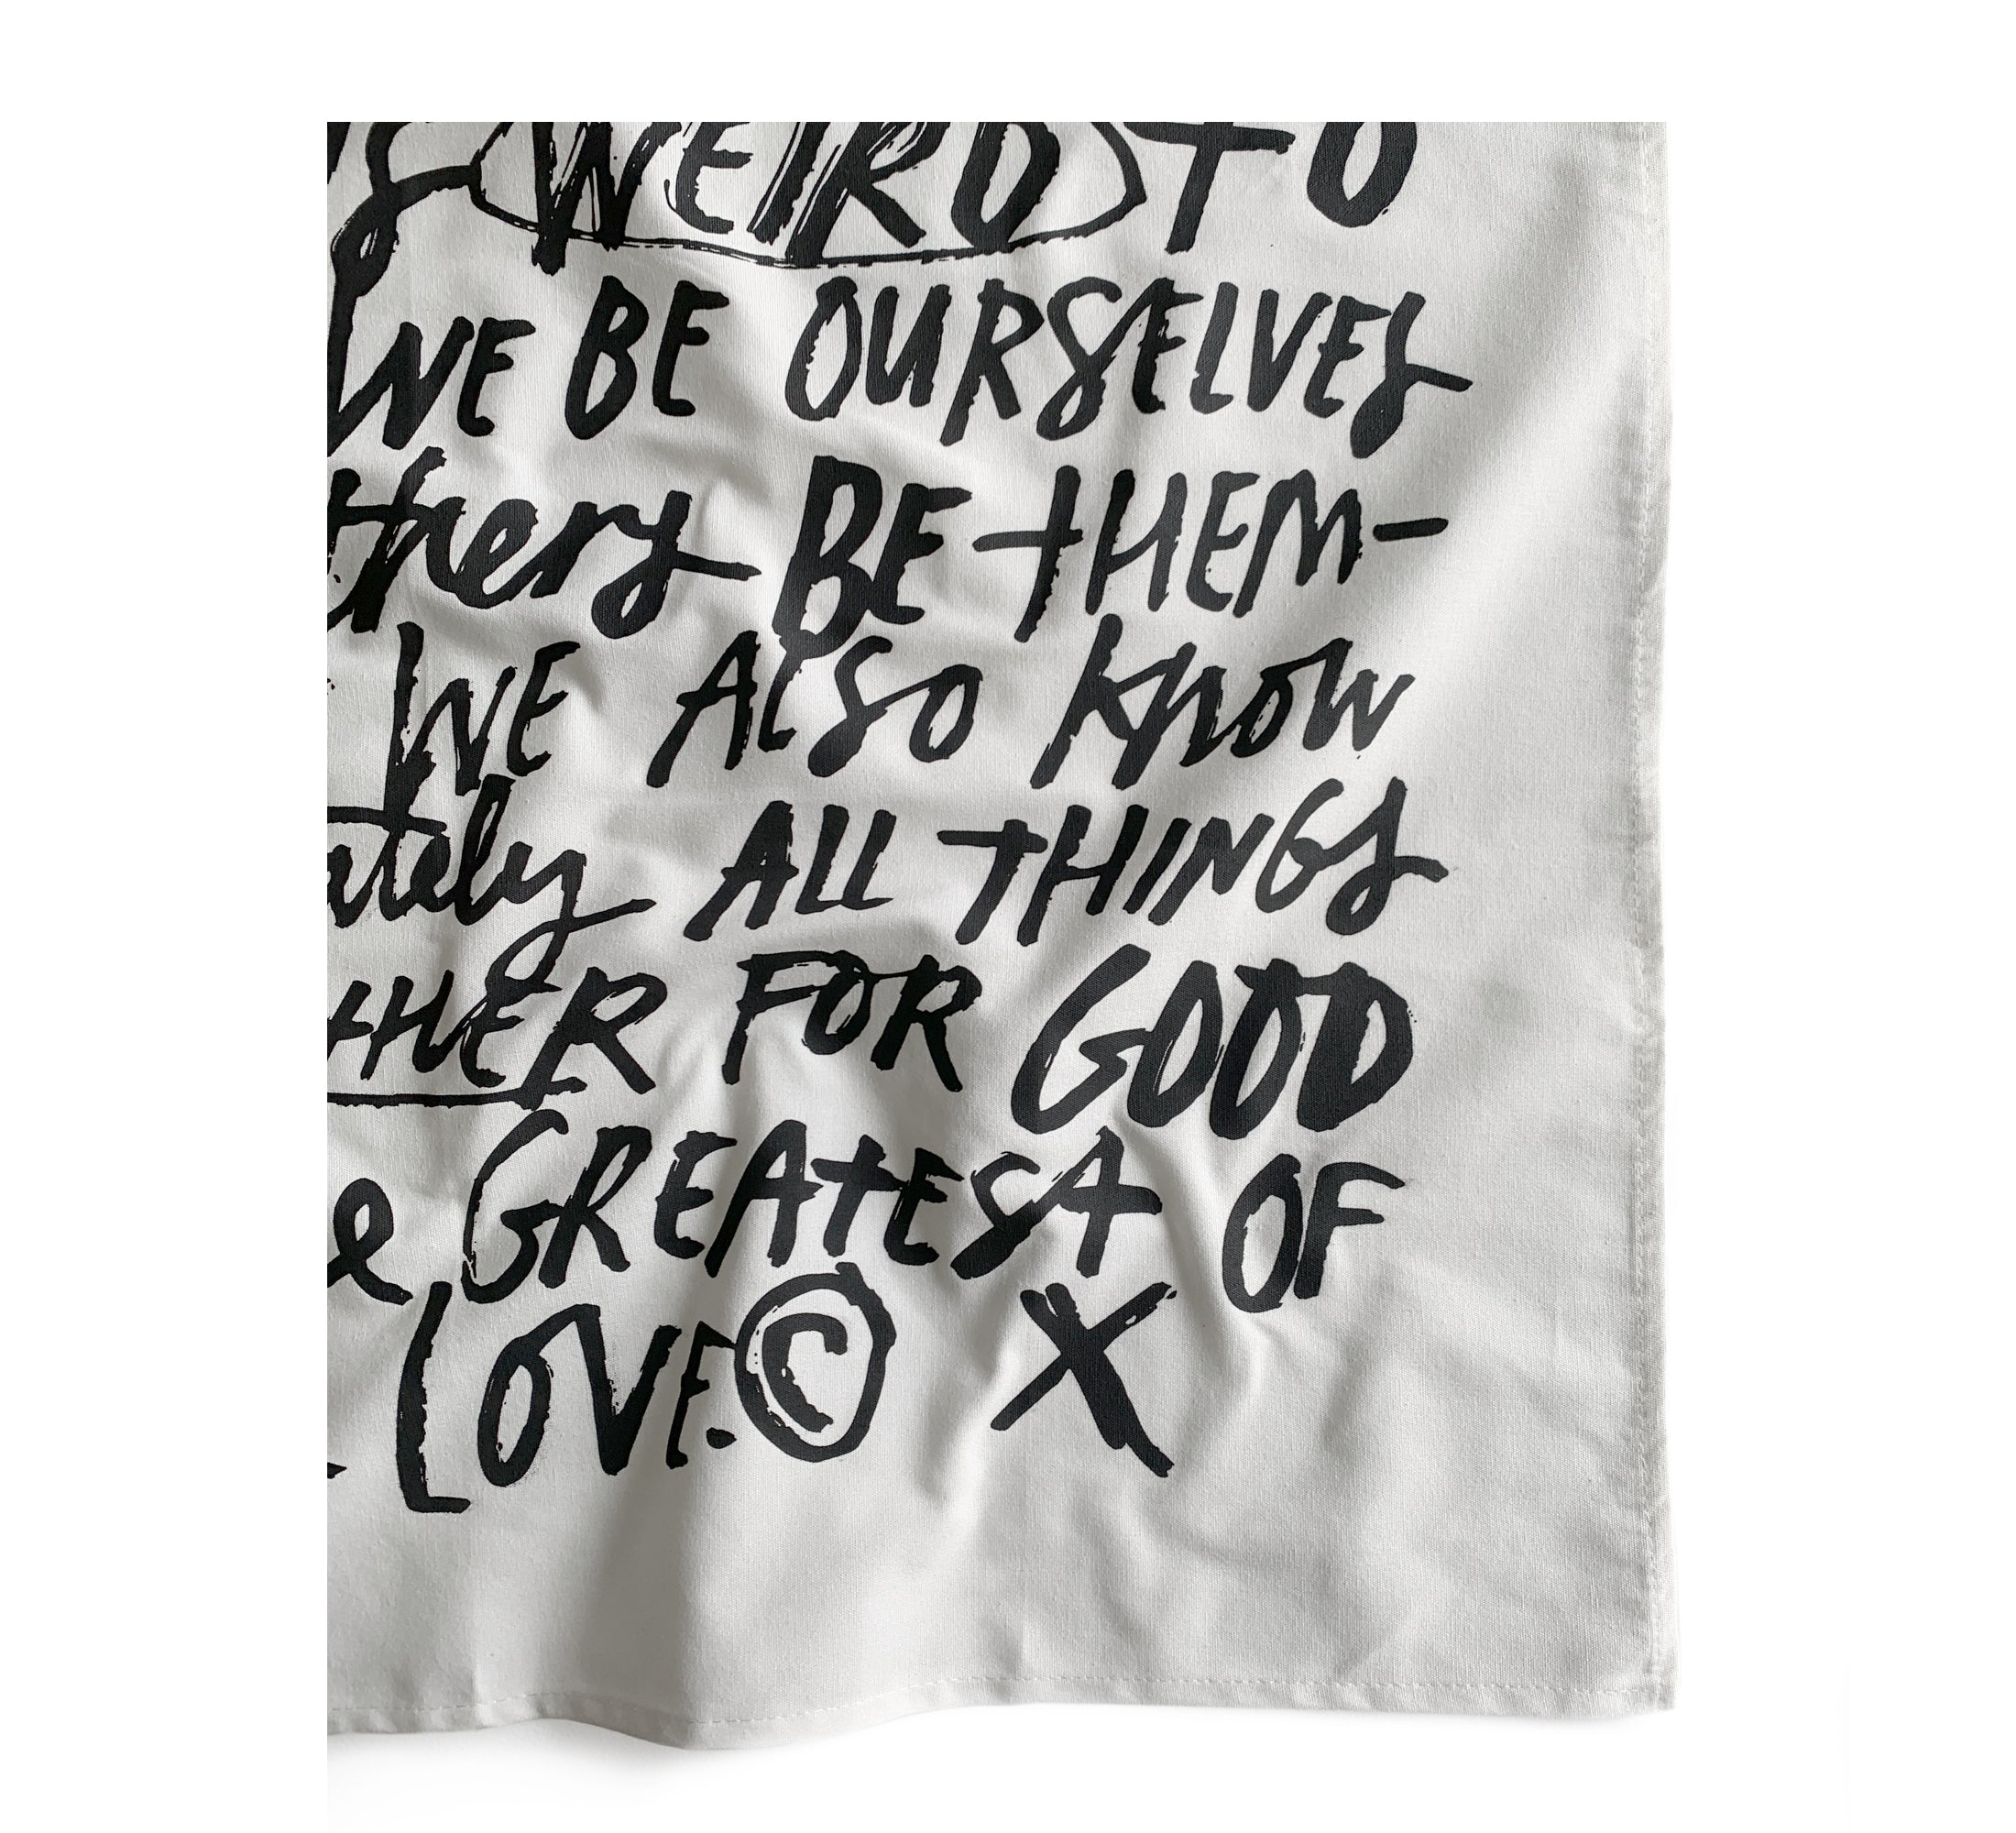 WEIRD TO
WE BE OURSELVES
thers BE tHEM-
WE ALSO KNOW
ately ALL THINGS
tHER FOR GOOD
e GREAtESt OF
LOVE. © X